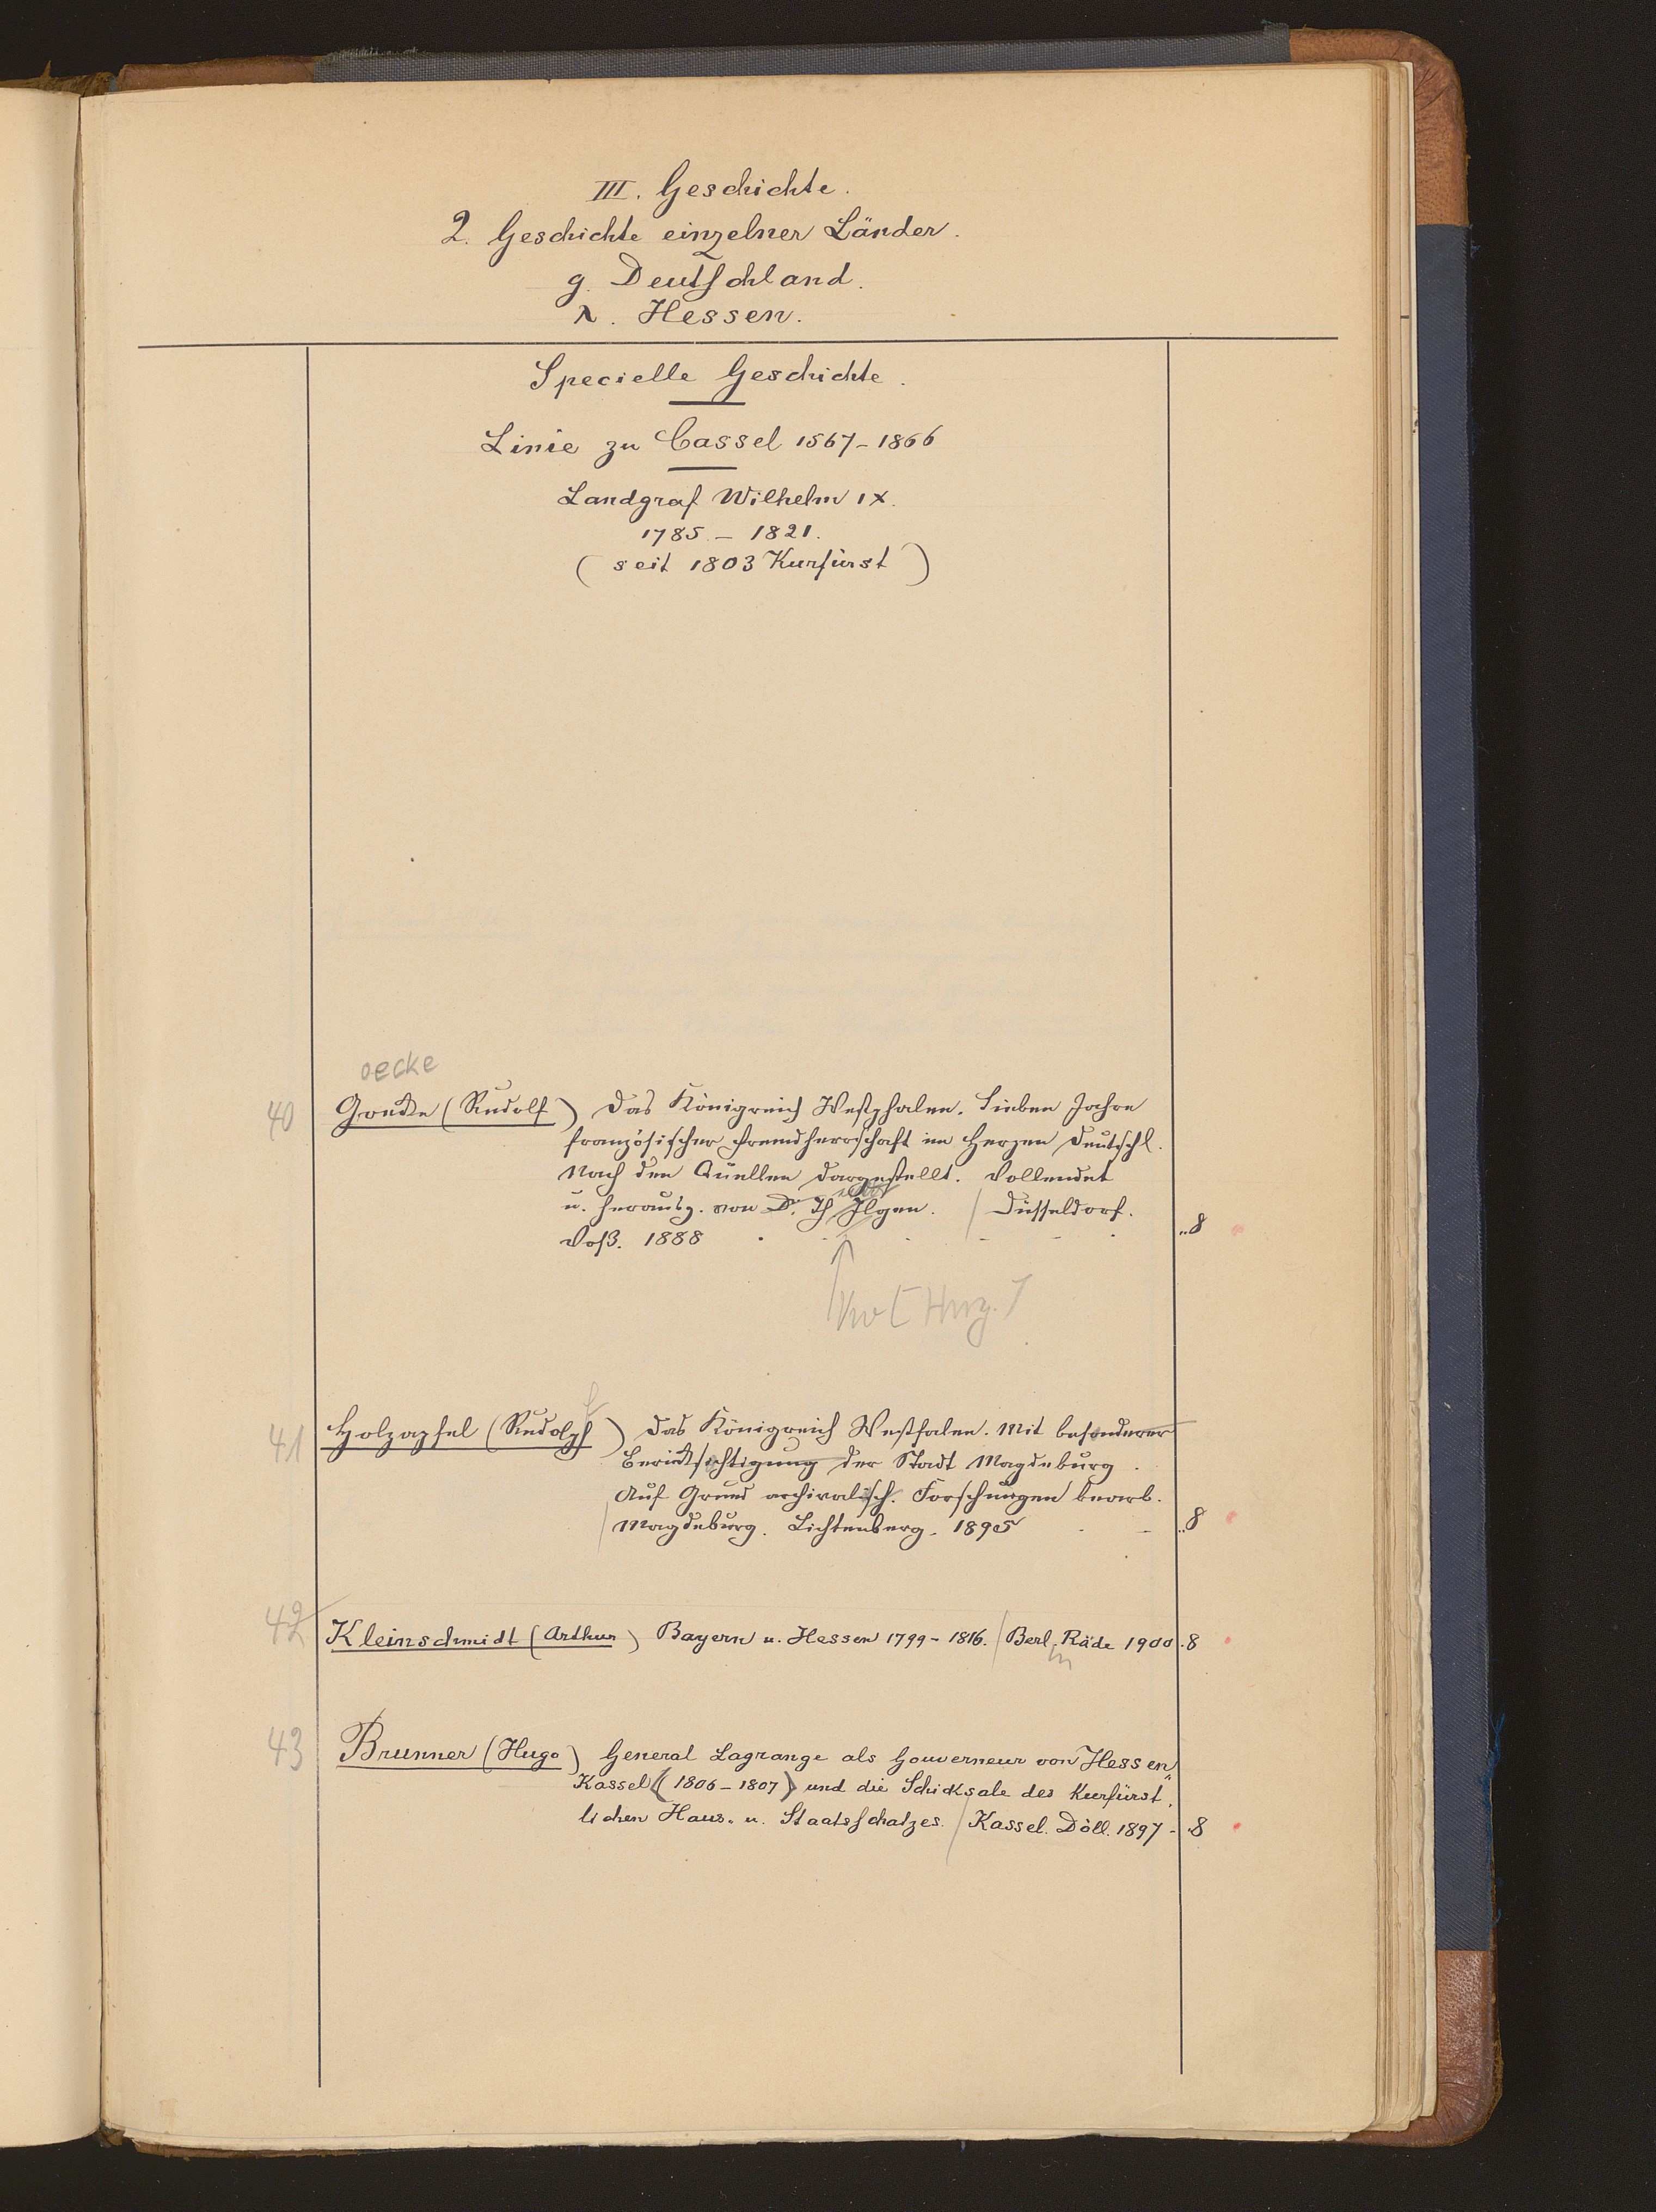 III. Geschichte.
2. Geschichte einzelner Länder.
g. Deutschland.
λ. Hessen.
Specielle Geschichte.
Linie zu Cassel 1567-1866
Landgraf Wilhelm IX.
1785.- 1821.
(seit 1803 Kurfürst)
oecke
40 Goecke (Rudolf) Das Königreich Westphalen. Sieben Jahre
französischer Fremdherrschaft im Herzen Deutschl.
Nach den Quellen dargestellt. Vollendet
u. herausg. von Dr. Th Ilgen. / Düsseldorf.
Voß. 1888 8
41 Holzapfel (Rudolph) Das Königreich Westfalen. Mit besonderer
Berücksichtigung der Stadt Magdeburg.
Auf Grund archivalisch. Forschungen bearb.
/ Magdeburg. Lichtenberg. 1895 8
42 Kleinschmidt (Arthur) Bayern u. Hessen 1799-1816. / Berl. Räde 1900. 8
in
43 Brunner (Hugo) General Lagrange als Gouverneur von Hessen-
Kassel (1806-1807) und die Schicksale des kurfürst-
lichen Haus- u. Staatsschatzes. / Kassel. Döll. 1897 - 8